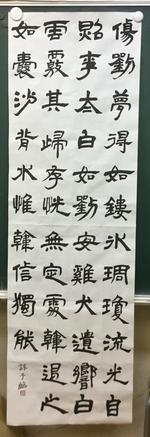 傷劉夢得如鏤冰琱瓊流光自
照李太白如劉安雞犬遺響白
雲覈其歸存恍無定處韓退之
如囊沙背水惟韓信獨能